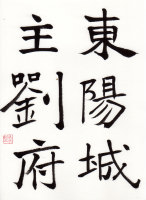 東陽城
主劉府